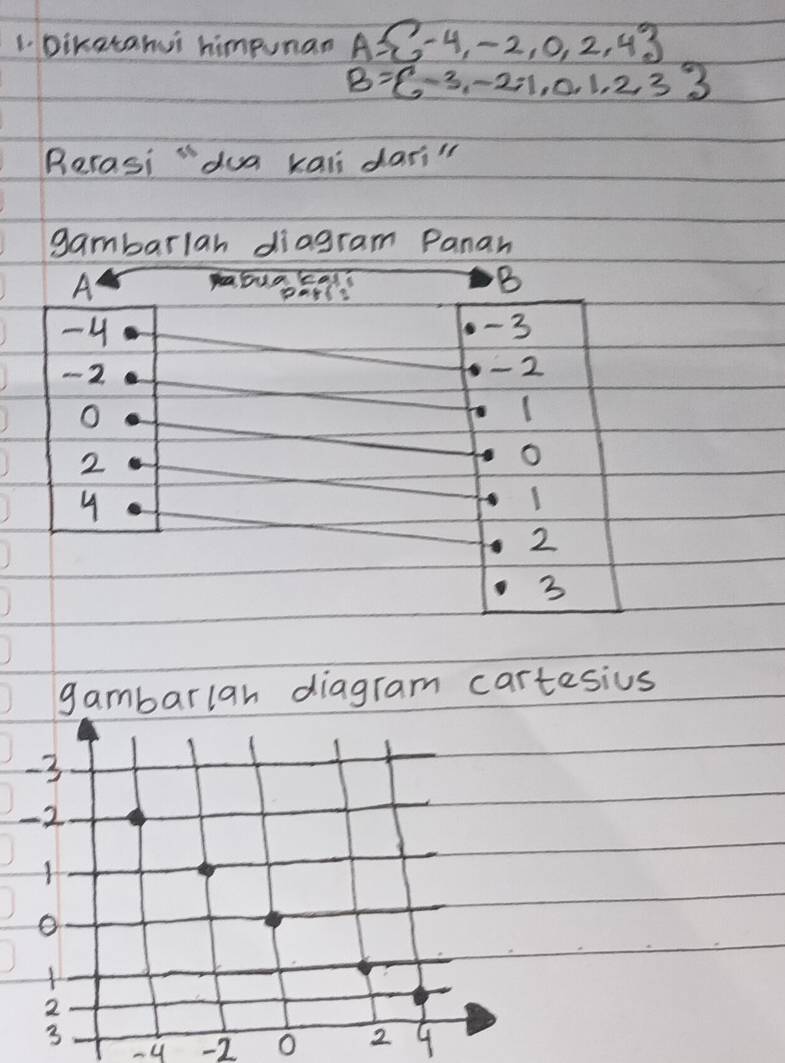 1. Diketahui himpunan A={-4,-2,0,2,4}
B={-3,-2,-1,0,1,2,3}
Relasi "dua kali dari"
gambarlah diagram Panah
A Dua kali B
Dari
-4 -3
-2 -2
0 1
2 0
4 1
2
3
gambarlah diagram cartesius
-3
-2
1
0
1
2
3
-4 -2 0 2 4